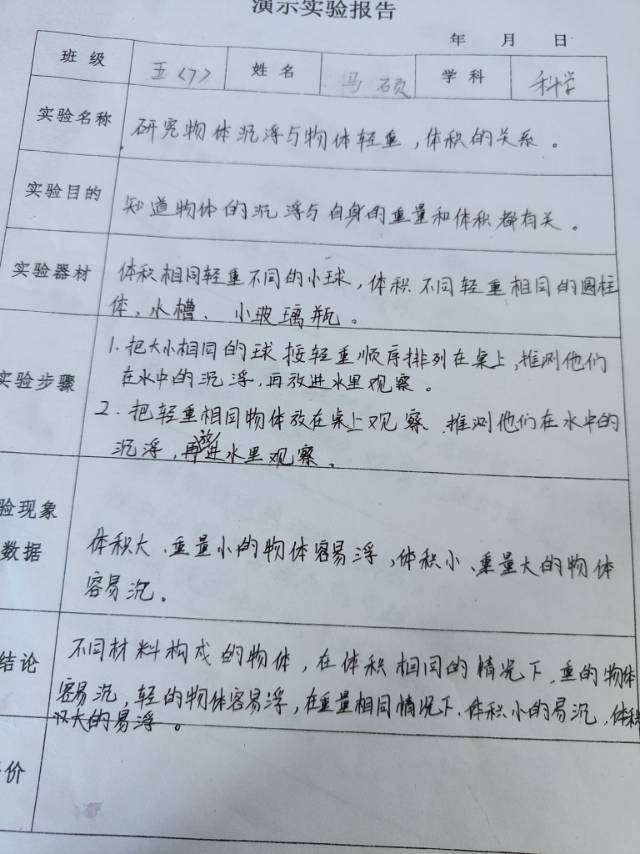 演示实验报告
年 月 日
班级 五(7) 姓名 马硕 学科 科学
实验名称 研究物体沉浮与物体轻重,体积的关系。
实验目的 知道物体的沉浮与自身的重量和体积都有关。
实验器材 体积相同轻重不同的小球,体积不同轻重相同的圆柱
体,水槽、小玻璃瓶。
1.把大小相同的球按轻重顺序排列在桌上,推测他们
实验步骤 在水中的沉浮,再放进水里观察。
2.把轻重相同物体放在桌上观察、推测他们在水中的
沉浮,再放进水里观察。
验现象
数据 体积大、重量小的物体容易浮,体积小、重量大的物体
容易沉。
结论 不同材料构成的物体,在体积相同的情况下,重的物体
容易沉,轻的物体容易浮,在重量相同情况下,体积小的易沉,体积
大的易浮。
价